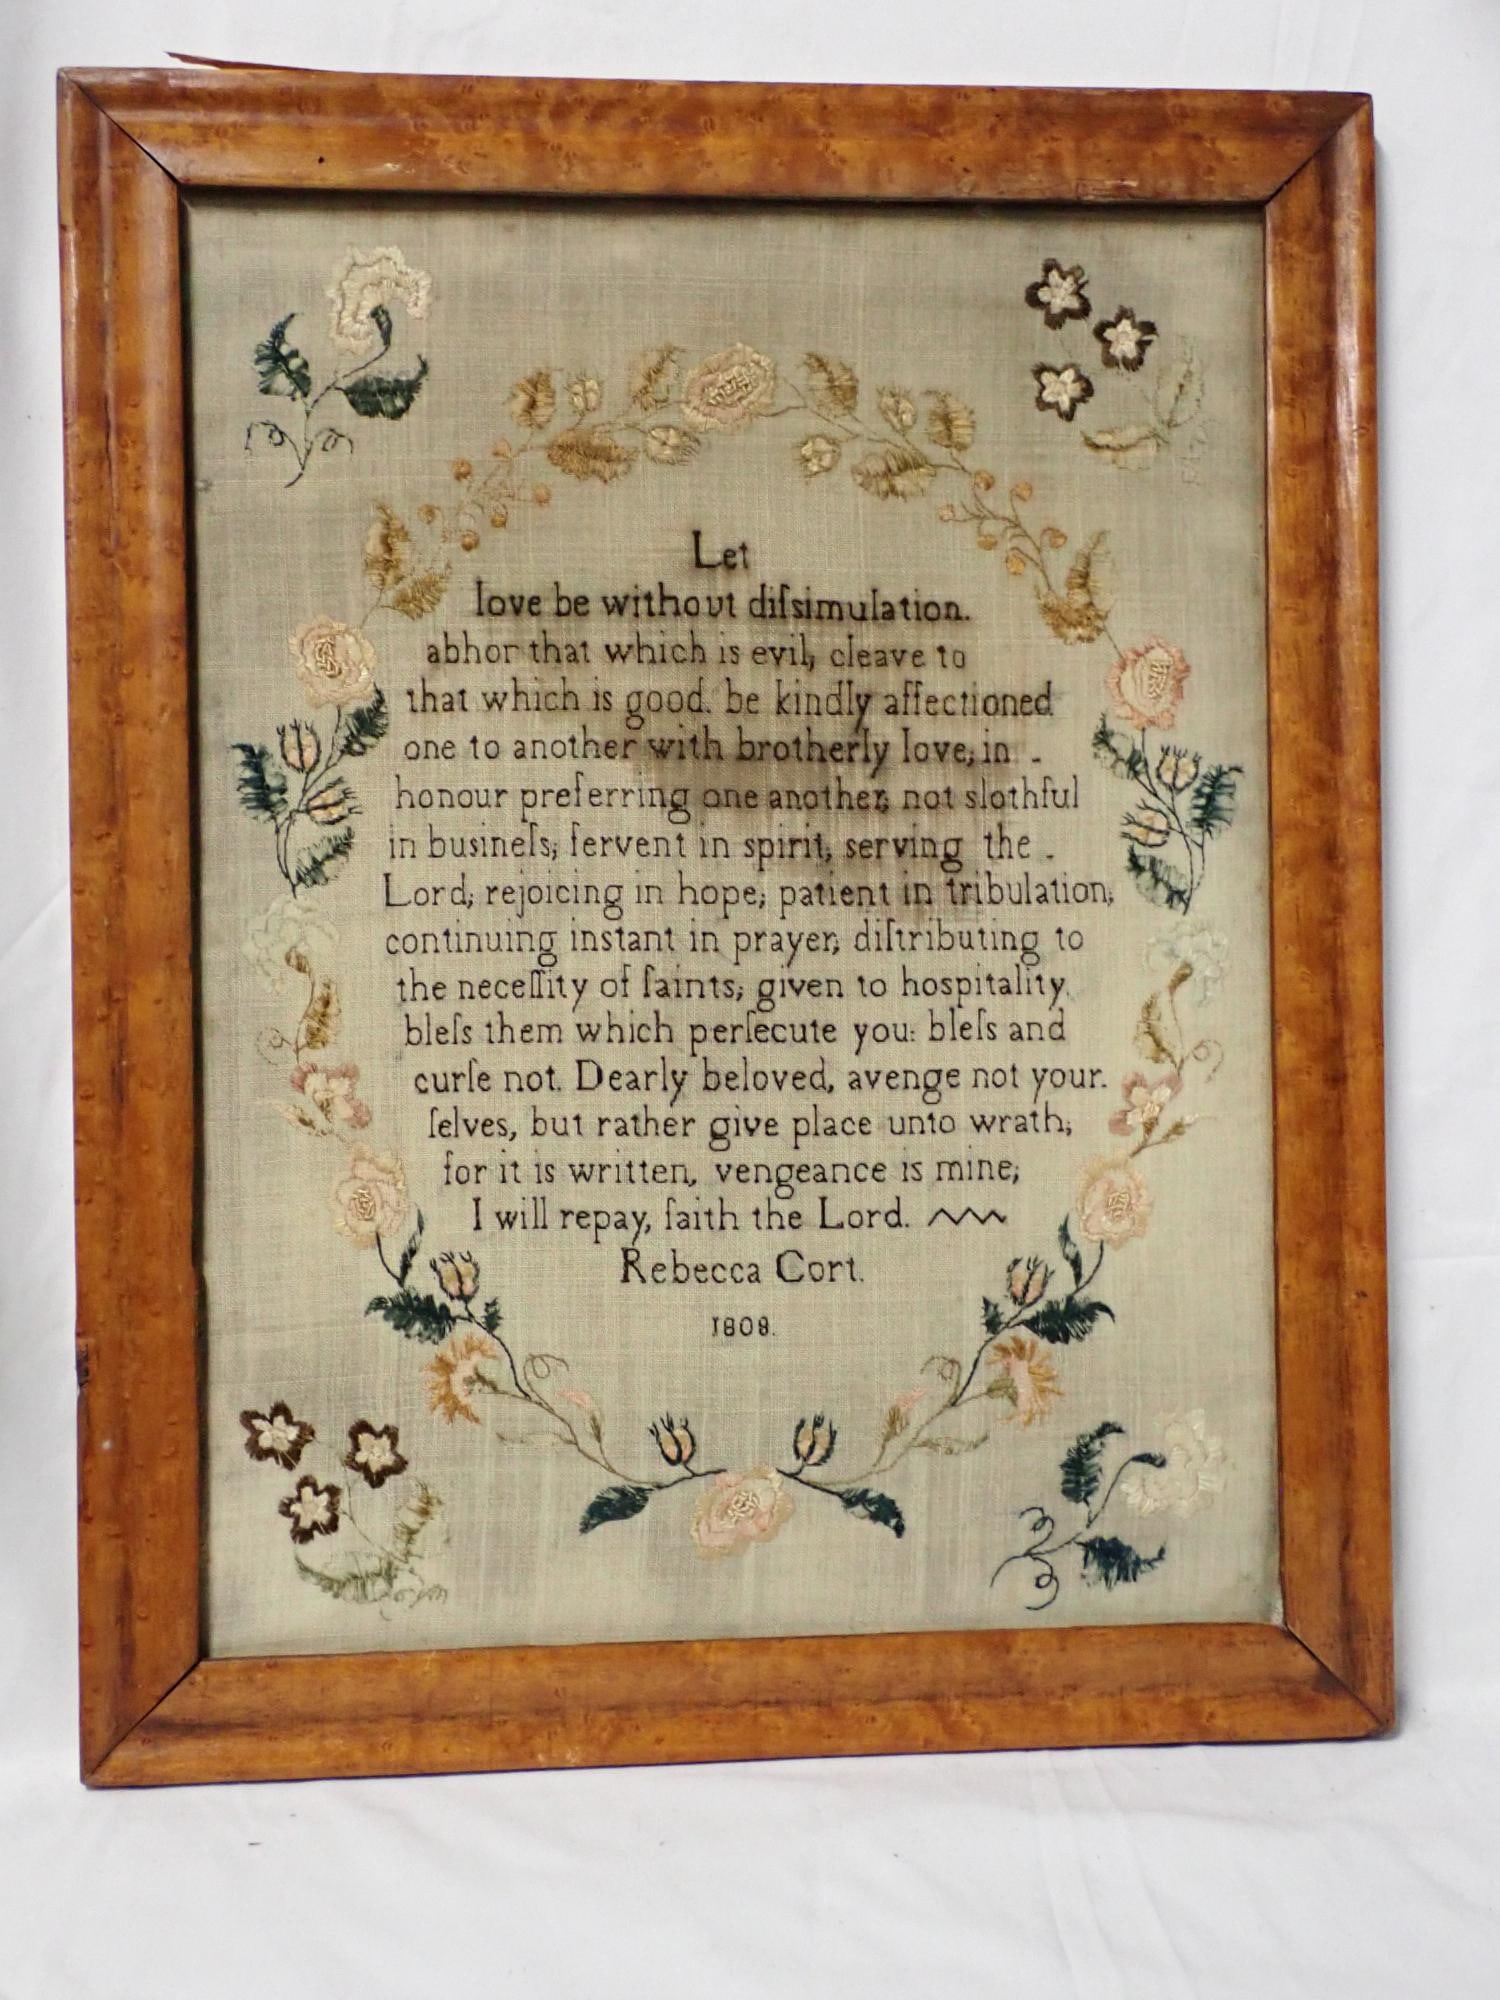 Let
love be without diſsimulation.
abhor that which is evil; cleave to
that which is good. be kindly affectioned
one to another with brotherly love; in -
honour preferring one another; not slothful
in buſineſs; fervent in spirit; serving the -
Lord; rejoicing in hope; patient in tribulation;
continuing instant in prayer; diſtributing to
the neceſſity of ſaints; given to hospitality.
bleſs them which perſecute you: bleſs and
curſe not. Dearly beloved, avenge not your-
ſelves, but rather give place unto wrath;
for it is written, vengeance is mine;
I will repay, ſaith the Lord.
Rebecca Cort.
1808.